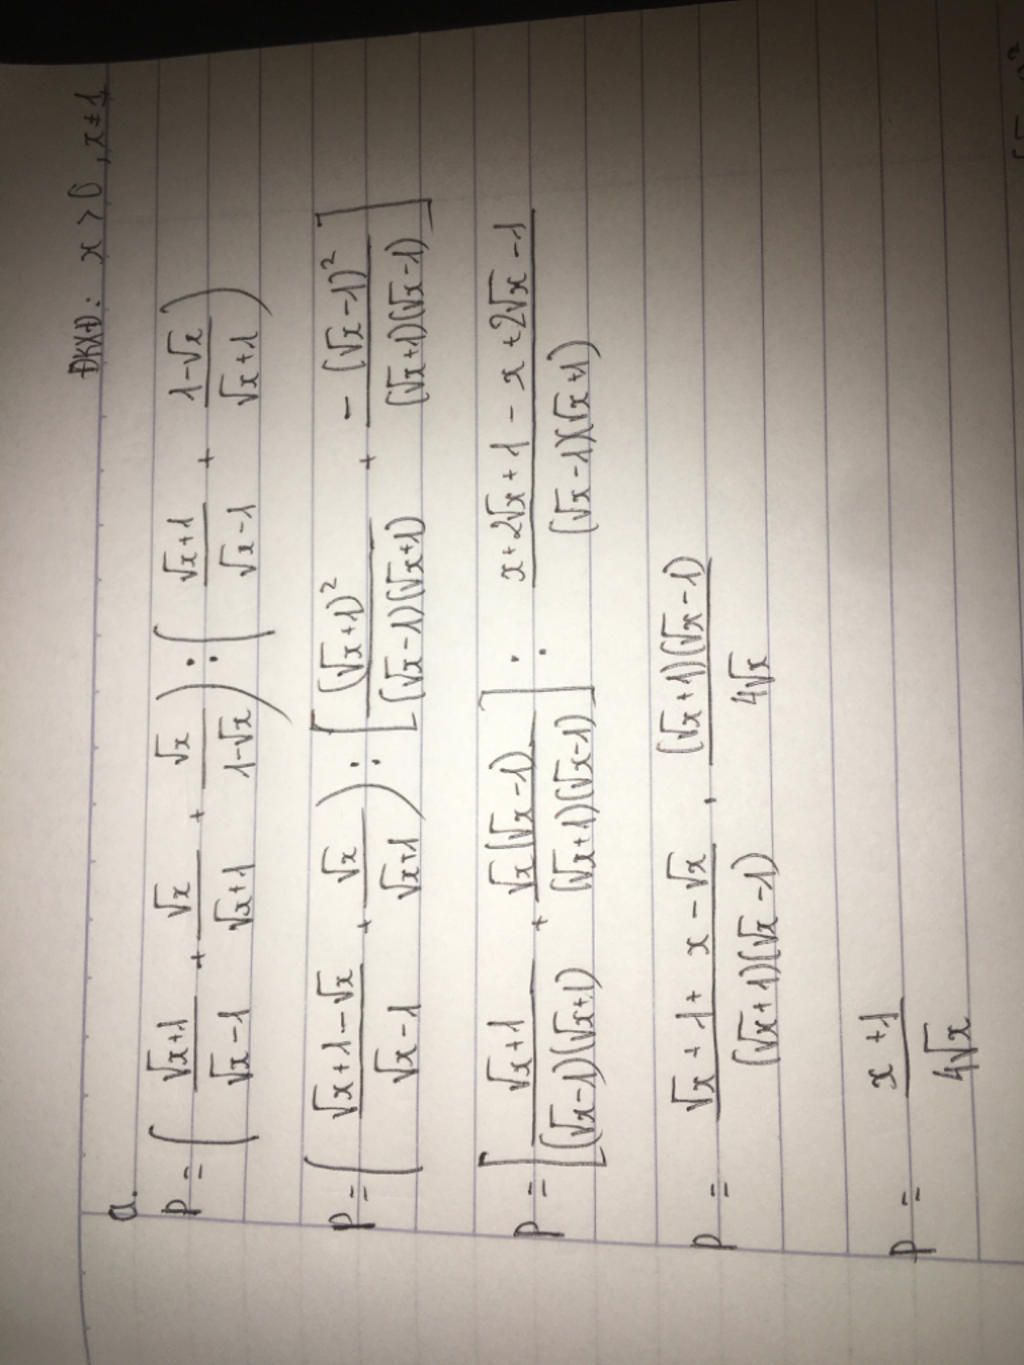 ĐKXĐ: x > 0, x ≠ 1
a.
P = ( (√x+1)/(√x-1) + √x/(√x+1) + √x/(1-√x) ) : ( (√x+1)/(√x-1) + (1-√x)/(√x+1) )
P = ( (√x+1-√x)/(√x-1) + √x/(√x+1) ) : [ (√x+1)²/((√x-1)(√x+1)) + -(√x-1)²/((√x+1)(√x-1)) ]
P = [ (√x+1)/((√x-1)(√x+1)) + √x(√x-1)/((√x+1)(√x-1)) ] : (x+2√x+1-x+2√x-1)/((√x-1)(√x+1))
P = (√x+1+x-√x)/((√x+1)(√x-1)) . (√x+1)(√x-1)/(4√x)
P = (x+1)/(4√x)